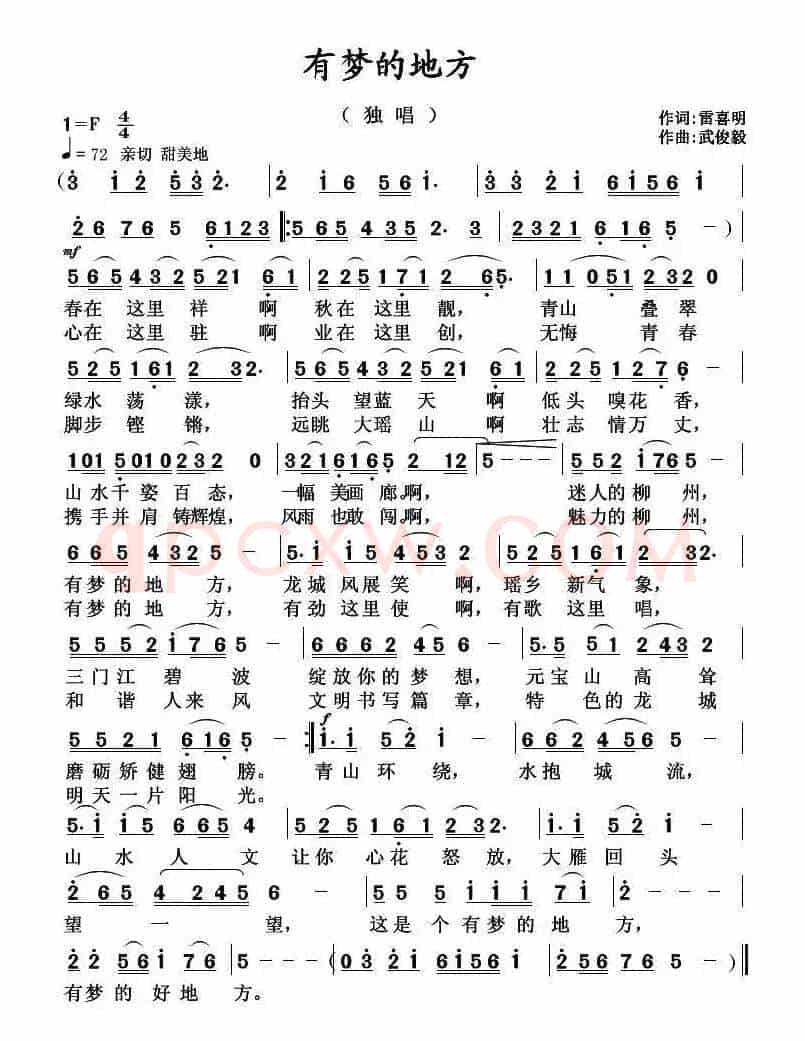 有梦的地方
（独唱）
1=F 4/4
作词:雷喜明
作曲:武俊毅
♩=72 亲切 甜美地
(3 1 2 5 3 2· | 2 1 6 5 6 1· | 3 3 2 1 6 1 5 6 1 |
2 6 7 6 5 6 1 2 3 ‖: 5 6 5 4 3 5 2· 3 | 2 3 2 1 6 1 6 5 - )
mf
5 6 5 4 3 2 5 2 1 6 1 | 2 2 5 1 7 1 2 6 5· | 1 1 0 5 1 2 3 2 0
春在 这里 祥 啊 秋在 这里 靓， 青山 叠翠
心在 这里 驻 啊 业在 这里 创， 无悔 青春
5 2 5 1 6 1 2 3 2· | 5 6 5 4 3 2 5 2 1 6 1 | 2 5 2 1 1 2 7 6 - |
绿水 荡漾， 抬头 望蓝 天 啊 低头 嗅花 香，
脚步 铿锵， 远眺 大瑶 山 啊 壮志 情万 丈，
1 0 1 5 0 1 0 2 3 2 0 | 3 2 1 6 1 6 5 2 1 2 | 5 - - - | 5 5 2 1 7 6 5 - |
山水千姿百态， 一幅 美画 廊。啊， 迷人的柳州，
携手并肩铸辉煌， 风雨 也敢 闯。啊， 魅力的柳州，
qpcxw.com
6 6 5 4 3 2 5 - | 5· 1 1 5 3 5 4 5 2 | 5 2 5 1 6 1 2 3 2· |
有梦的地方， 龙城风展笑啊，瑶乡新气象，
有梦的地方， 有劲这里使啊，有歌这里唱，
5 5 5 2 1 7 6 5 - | 6 6 6 2 4 5 6 - | 5· 5 5 1 2 4 3 2 |
三门江碧波 绽放你的梦想， 元宝山高耸
和谐人来风 文明书写篇章， 特色的龙城
f
5 5 2 1 6 1 6 5 - :‖ 1· 1 5 2 1 - | 6 6 2 4 5 6 5 - |
磨砺矫健翅膀。 青山环绕， 水抱城流，
明天一片阳光。
5· 1 1 5 6 6 5 4 | 5 2 5 1 6 1 2 3 2· | 1· 1 5 5 2 -
山水人文 让你心花怒放， 大雁回头
2 6 5 4 2 4 5 6 - | 5 5 5 1 1 1 7 1 | 2 - - - |
望一望， 这是个有梦的地方，
2 2 5 6 1 7 6 | 5 - - - (| 3 2 1 2 6 1 5 1 5 6 1 | 2 5 6 7 6 5 - )‖
有梦的好地方。